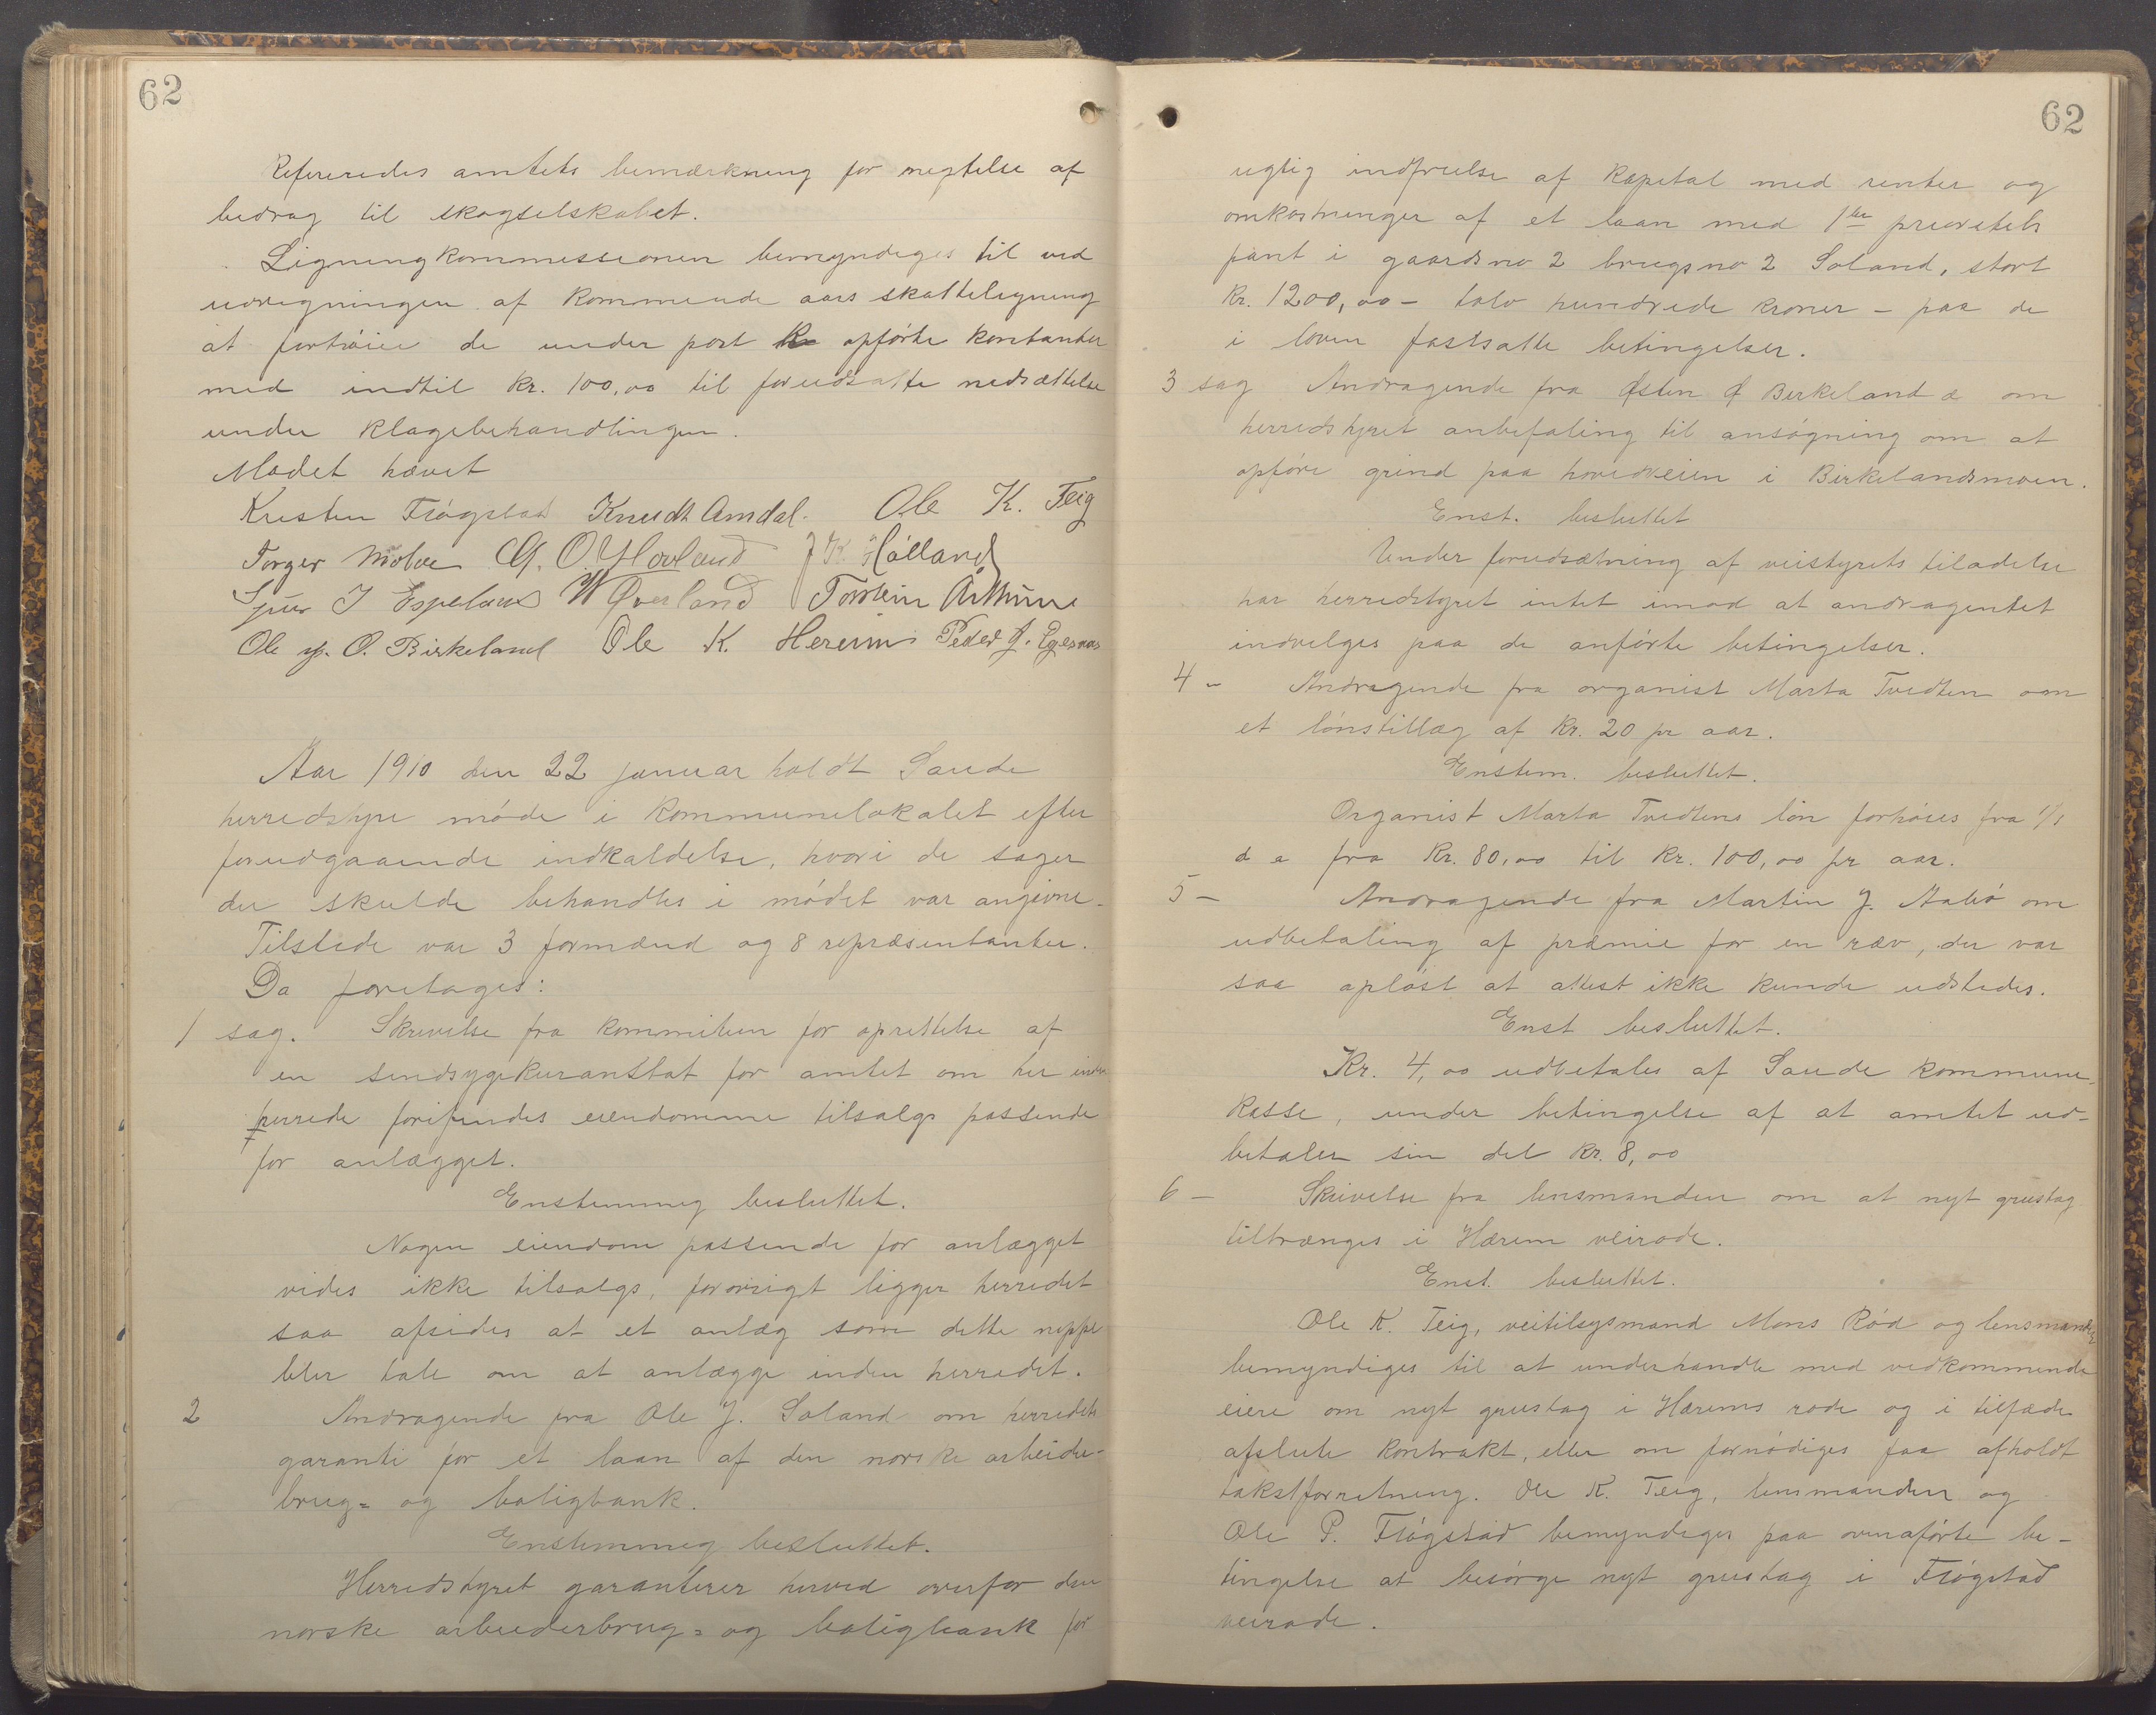 62
Refereredes amtets bemærkning for negtelse af
bedrag til skogselskabet.
Ligningkommissionen bemyndiges til ved
udregningen af kommende aars skatteligning
at forhøie de under post opførte kontanter
med indtil kr. 100,00 til forudsatte nedsættelse
under klagebehandlingen.
Mødet hævet
Kristen Frøgstad Knudt Amdal. Ole K. Teig
Torger Moboe G. O. Hovland J K Hålland
Sjur J Espeland W Øverland Torstein Århuus
Ole O. Birkeland Ole K. Hereim Peder J. Egesaas
Aar 1910 den 22 januar holdt Saude
herredstyre møde i kommunelokalet efter
forudgaaende indkaldelse, hvori de sager
der skulde behandles i mødet var angivne.
Tilstede var 3 formænd og 8 repræsentanter.
Da foretages:
1 sag. Skrivelse fra kommiteen for oprettelse af
en sindsygekuranstat for amtet om her inden
herrede forefindes eiendomme tilsalgs passende
for anlægget.
Enstemmig besluttet.
Nogen eiendom passende for anlægget
vides ikke tilsalgs, forøvrigt ligger herredet
saa afsides at et anlæg som dette neppe
bler tale om at anlægge inden herredet.
2 Andragende fra Ole J. Soland om herredets
garanti for et laan af den norske arbeider-
brug= og boligbank.
Enstemmig besluttet.
Herredstyret garanterer herved overfor den
norske arbeiderbrug= og boligbank for
62
rigtig indfrielse af kapital med renter og
omkostninger af et laan med 1ste prioritets
pant i gaardsno 2 brugsno 2 Soland, stort
kr. 1200,00 – tolv hundrede kroner – paa de
i loven fastsatte betingelser.
3 sag Andragende fra Østen Ø Birkeland om
herredstyret anbefaling til ansøgning om at
opføre grind paa hovedveien i Birkelandsmoen.
Enst. besluttet
Under forudsætning af veistyrets tiladelse
har herredstyret intet imod at andragentet
indvelges paa de anførte betingelser.
4 – Andragende fra organist Marta Tvedten om
et lønstillæg af kr. 20 pr aar.
Enstem. besluttet.
Organist Marta Tvedtens løn forhøies fra 1/1
d a fra kr. 80,00 til kr. 100,00 pr aar.
5 – Andragende fra Martin J. Aabø om
udbetaling af præmie for en ræv, der var
saa opløst at attest ikke kunde udstedes.
Enst besluttet.
Kr. 4,00 udbetales af Saude kommune-
kasse, under betingelse af at amtet ud-
betaler sin del kr. 8,00
6 – Skrivelse fra lensmanden om at nyt grustag
tiltrænges i Hærem veirode.
Enst. besluttet.
Ole K. Teig, veitilsysmand Mons Rød og lensmanden
bemyndiges til at underhandle med vedkommende
eiere om nyt grustag i Hærems rode og i tilfæde
afslute kontrakt, eller om fornødiges faa afholdt
takstforretning. Ole K. Teig, lensmanden og
Ole P. Frøgstad bemyndiges paa ovenaførte be-
tingelse at besørge nyt grustag i Frøgstad
veirode.